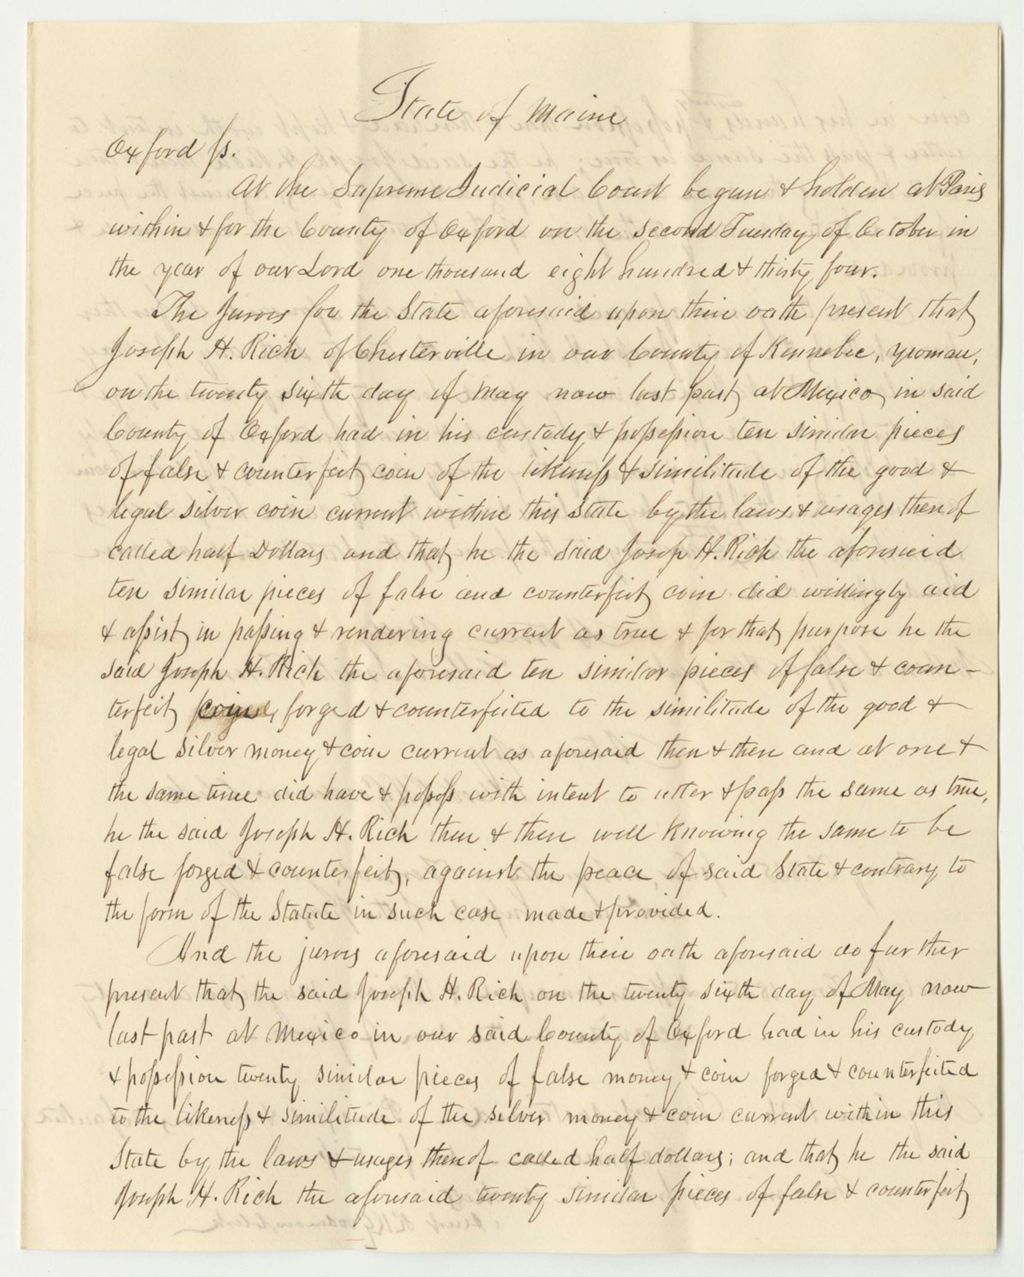 State of Maine
Oxford ss.
At the Supreme Judicial Court begun & holden at Paris
within & for the County of Oxford on the second Tuesday of October in
the year of our Lord one thousand eight hundred & thirty four.
The Jurors for the State aforesaid upon their oath present that
Joseph H. Rich of Chesterville in our County of Kennebec, yeoman,
on the twenty sixth day of May now last past, at Mexico, in said
County of Oxford had in his custody & possession ten similar pieces
of false & counterfeit coin of the likeness & similitude of the good &
legal silver coin current within this State by the laws & usages thereof
called half Dollars and that he the said Joseph H. Rich the aforesaid
ten similar pieces of false and counterfeit coin did willingly aid
& assist in passing & rendering current as true & for that purpose he the
said Joseph H. Rich the aforesaid ten similar pieces of false & coun-
terfeit coin, forged & counterfeited to the similitude of the good &
legal silver money & coin current as aforesaid then & there and at one &
the same time did have & possess with intent to utter & pass the same as true,
he the said Joseph H. Rich then & there well knowing the same to be
false forged & counterfeit, against the peace of said State & contrary to
the form of the Statute in such case made & provided.
And the jurors aforesaid upon their oath aforesaid do further
present that the said Joseph H. Rich on the twenty sixth day of May now
last past at Mexico in our said County of Oxford had in his custody
& possession twenty similar pieces of false money & coin forged & counterfeited
to the likeness & similitude of the silver money & coin current within this
State by the laws & usages thereof called half dollars; and that he the said
Joseph H. Rich the aforesaid twenty similar pieces of false & counterfeit